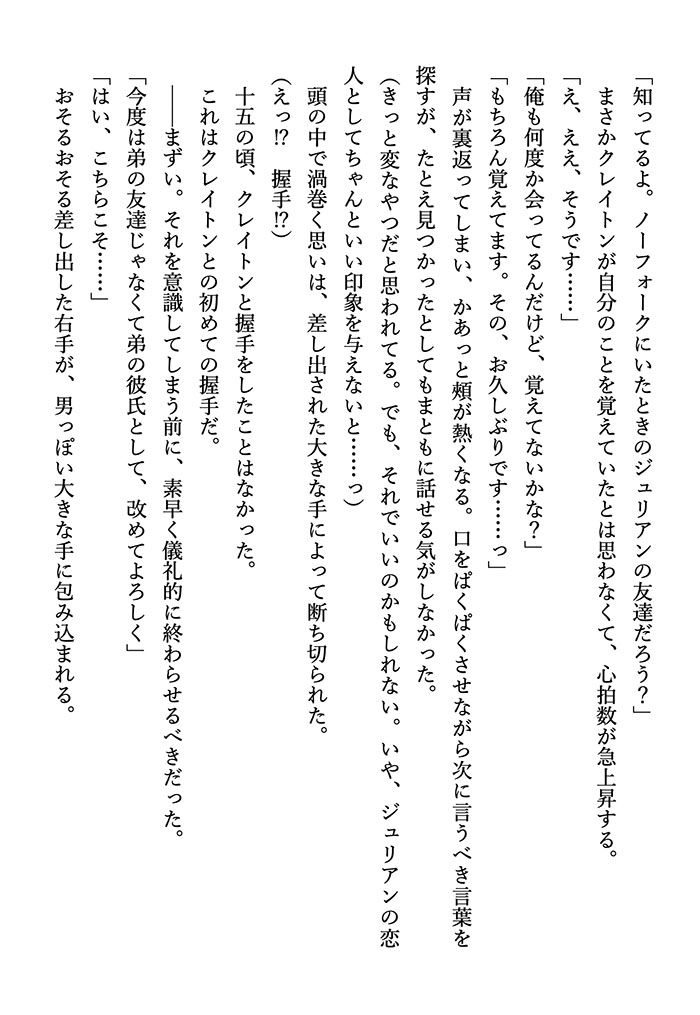 「知ってるよ。ノーフォークにいたときのジュリアンの友達だろう？」
まさかクレイトンが自分のことを覚えていたとは思わなくて、心拍数が急上昇する。
「え、ええ、そうです……」
「俺も何度か会ってるんだけど、覚えてないかな？」
「もちろん覚えてます。その、お久しぶりです……っ」
声が裏返ってしまい、かあっと頰が熱くなる。口をぱくぱくさせながら次に言うべき言葉を
探すが、たとえ見つかったとしてもまともに話せる気がしなかった。
（きっと変なやつだと思われてる。でも、それでいいのかもしれない。いや、ジュリアンの恋
人としてちゃんといい印象を与えないと……っ）
頭の中で渦巻く思いは、差し出された大きな手によって断ち切られた。
（えっ⁉　握手⁉）
十五の頃、クレイトンと握手をしたことはなかった。
これはクレイトンとの初めての握手だ。
――まずい。それを意識してしまう前に、素早く儀礼的に終わらせるべきだった。
「今度は弟の友達じゃなくて弟の彼氏として、改めてよろしく」
「はい、こちらこそ……」
おそるおそる差し出した右手が、男っぽい大きな手に包み込まれる。